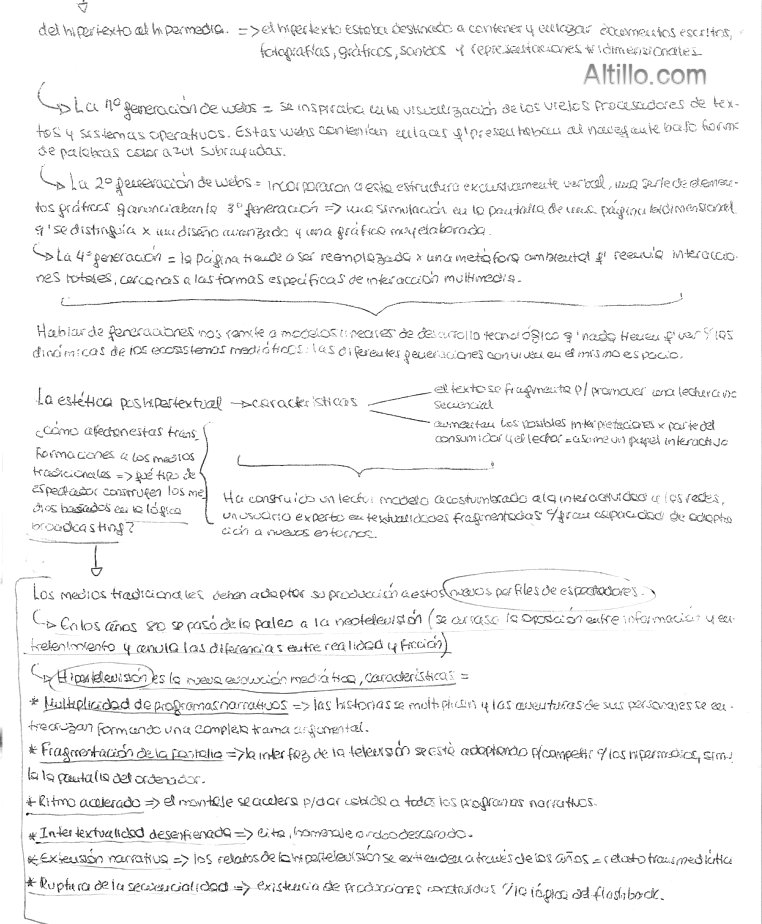 del hipertexto al hipermedia. => el hipertexto estaba destinado a contener y enlazar documentos escritos,
fotografías, gráficos, sonidos y representaciones tridimensionales
Altillo.com
La 1º generación de webs = se inspiraba en la visualización de los viejos procesadores de tex-
tos y sistemas operativos. Estas webs contenían enlaces q' presentaban al navegante bajo forma
de palabras color azul subrayadas.
La 2º generación de webs = incorporaron a esta estructura exclusivamente verbal, una serie de elemen-
tos gráficos q anunciaban la 3º generación => una simulación en la pantalla de una página bidimensional
q' se distinguía x un diseño avanzado y una gráfica muy elaborada.
La 4º generación = la página tiende a ser reemplazada x una metáfora ambiental q' reenvía interaccio
nes totales, cercanas a las formas específicas de interacción multimedia.
Hablar de generaciones nos remite a modelos lineales de desarrollo tecnológico q' nada tienen q' ver c/ las
dinámicas de los ecosistemas mediáticos: las diferentes generaciones conviven en el mismo espacio.
La estética posthipertextual → características
el texto se fragmenta p/ promover una lectura no
secuencial
aumentan las posibles interpretaciones x parte del
consumidor y el lector = asume un papel interactivo
¿Cómo afectan estas trans
formaciones a los medios
tradicionales => qué tipo de
espectador construyen los me
dios basados en la lógica
broadcasting?
Ha construido un lector modelo acostumbrado a la interactividad a las redes,
un usuario experto en textualidades fragmentadas c/ gran capacidad de adapta
ción a nuevos entornos.
Los medios tradicionales deben adaptar su producción a estos nuevos perfiles de espectadores.
En los años 80 se pasó de la paleo a la neotelevisión (se arrasó la oposición entre información y en-
tretenimiento y anula las diferencias entre realidad y ficción)
Hipertelevisión es la nueva evolución mediática, características =
* Multiplicidad de programas narrativos => las historias se multiplican y las aventuras de sus personajes se en-
trecruzan formando una compleja trama argumental.
* Fragmentación de la pantalla => la interfaz de la televisión se está adaptando p/ competir c/ los hipermedios, simu
la la pantalla del ordenador.
* Ritmo acelerado => el montaje se acelera p/ dar cabida a todos los programas narrativos.
* Intertextualidad desenfrenada => cita, homenaje o robo descarado.
* Extensión narrativa => los relatos de la hipertelevisión se extienden a través de los años = relato transmediático
* Ruptura de la secuencialidad => existencia de producciones construidas c/ la lógica del flashback.